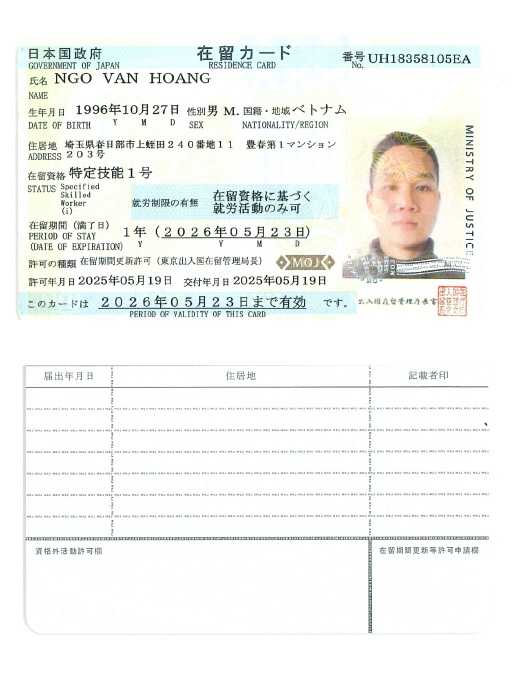 日本国政府 在留カード 番号 UH18358105EA
GOVERNMENT OF JAPAN RESIDENCE CARD No.
氏名 NGO VAN HOANG
NAME
生年月日 1996年10月27日 性別 男 M. 国籍・地域 ベトナム
DATE OF BIRTH Y M D SEX NATIONALITY/REGION
住居地 埼玉県春日部市上蛭田240番地11 豊春第1マンション
ADDRESS 203号
在留資格 特定技能1号
STATUS Specified
Skilled
Worker
(i)
就労制限の有無 在留資格に基づく
就労活動のみ可
在留期間（満了日） 1年（2026年05月23日）
PERIOD OF STAY
(DATE OF EXPIRATION) Y Y M D
許可の種類 在留期間更新許可（東京出入国在留管理局長）
MOJ
許可年月日 2025年05月19日 交付年月日 2025年05月19日
このカードは 2026年05月23日まで有効 です。
PERIOD OF VALIDITY OF THIS CARD
MINISTRY OF JUSTICE
出入国在留管理庁長官
届出年月日 住居地 記載者印
資格外活動許可欄 在留期間更新等許可申請欄